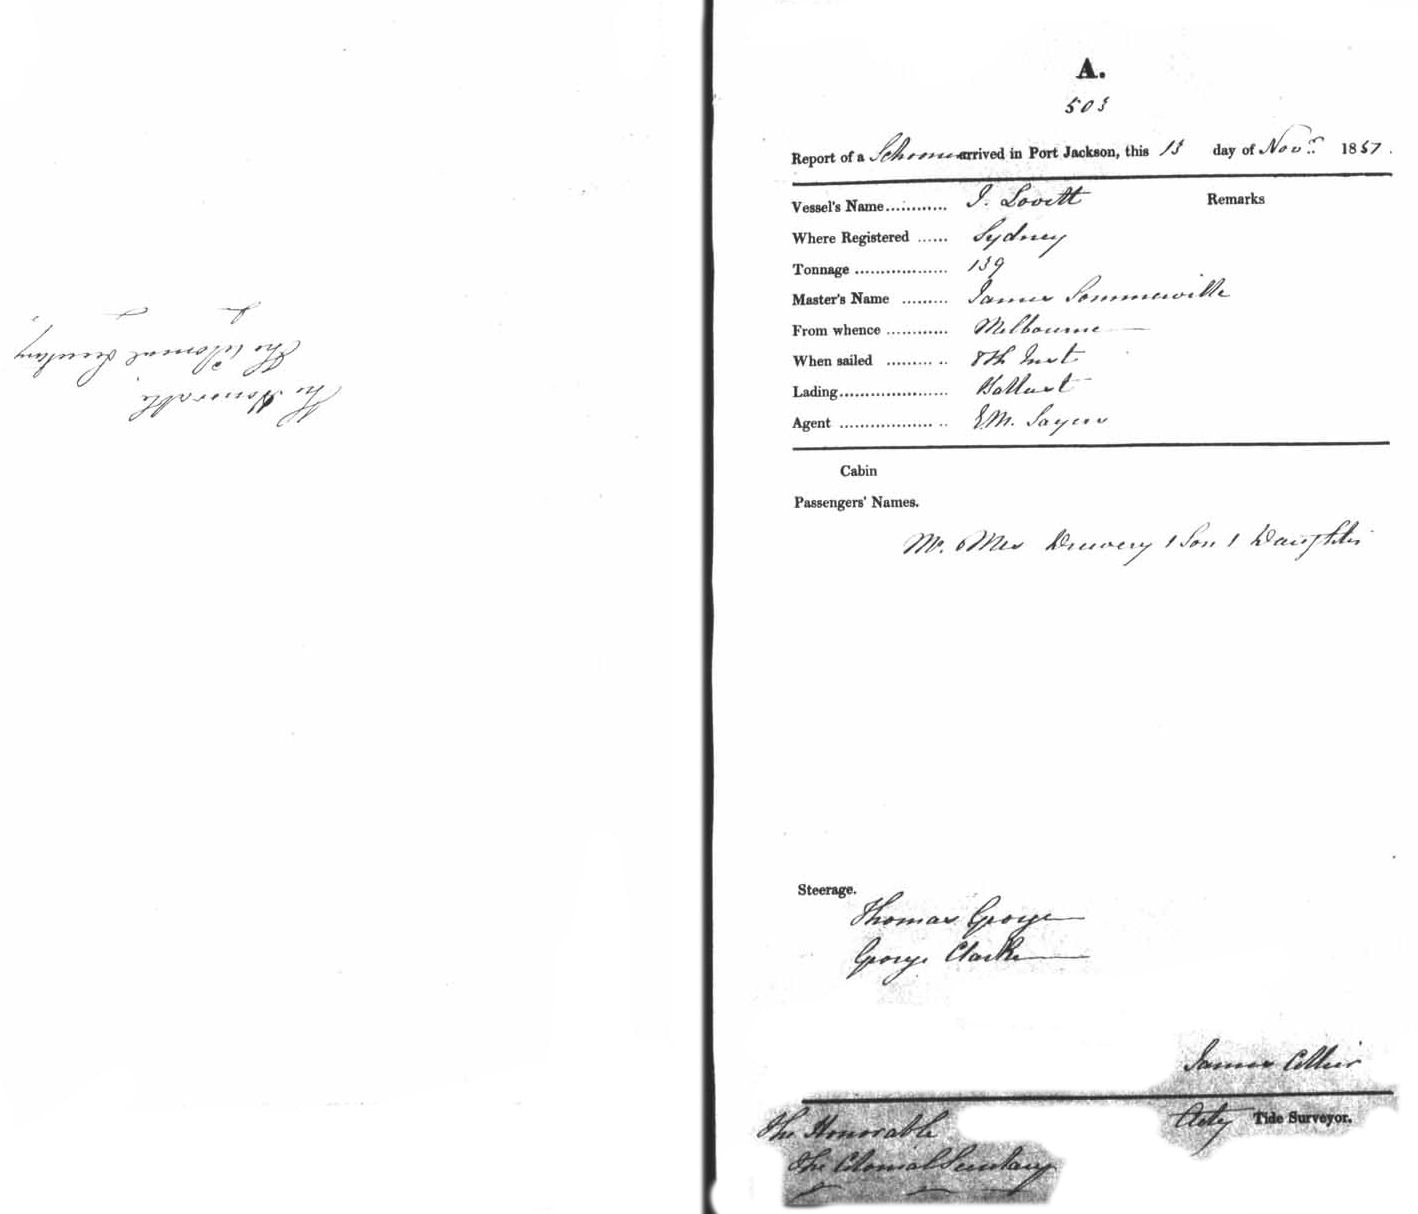 The Honorable
The Colonial Secretary
A.
503
Report of a Schooner arrived in Port Jackson, this 13 day of Novr. 1857.
Vessel's Name............ J. Lovett Remarks
Where Registered ...... Sydney
Tonnage .................. 139
Master's Name ......... James Sommerville
From whence ............ Melbourne
When sailed ......... .. 8th Inst
Lading..................... Ballast
Agent .................. .. E.M. Sayers
Cabin
Passengers' Names.
Mr. Mrs Druvery 1 Son 1 Daughter
Steerage.
Thomas George
George Clarke
James Collier
Actg Tide Surveyor.
The Honorable
The Colonial Secretary